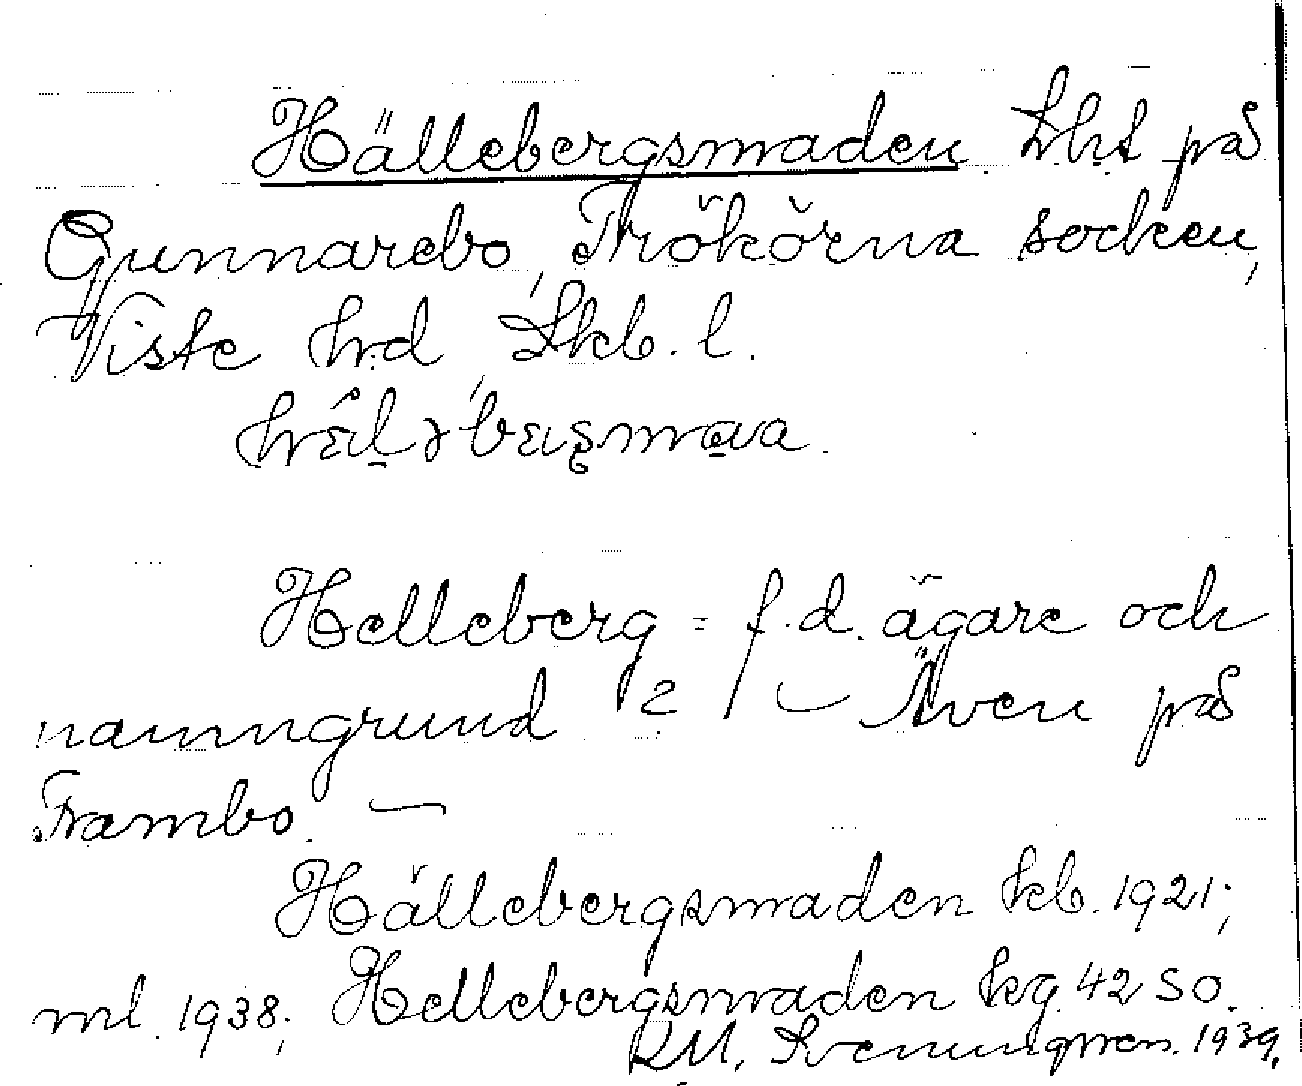 Hällebergsmaden Lht på
Gunnarebo, Trökörna socken,
Viste hrd, Skb. l.
Helleberg = f.d. ägare och
namngrund? / — Även på
Frambo. —
Hällebergsmaden kb. 1921;
ml. 1938; Hellebergsmaden kg. 42 SO.
R.M. Svenungsson. 1939.